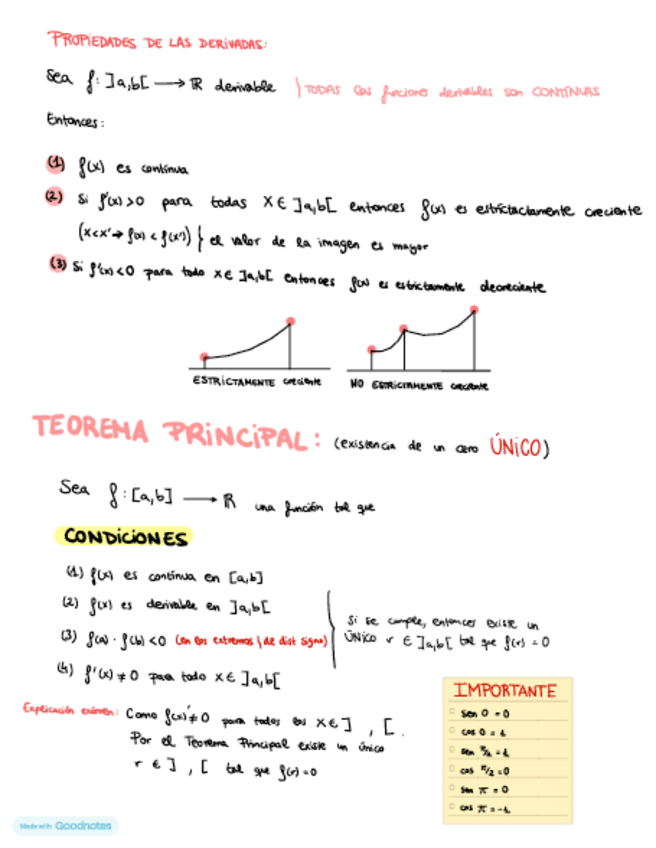 PROPIEDADES DE LAS DERIVADAS:
Sea f: ]a,b[ ⟶ ℝ derivable | TODAS las funciones derivables son CONTÍNUAS
Entonces:
(1) f(x) es contínua
(2) Si f'(x) > 0 para todas x ∈ ]a,b[ entonces f(x) es estrictactamente creciente
(x < x' → f(x) < f(x')) } el valor de la imagen es mayor
(3) Si f'(x) < 0 para todo x ∈ ]a,b[ entonces f(x) es estrictamente decreciente
ESTRICTAMENTE creciente
NO ESTRICTAMENTE creciente
TEOREMA PRINCIPAL: (existencia de un cero ÚNICO)
Sea f: [a,b] ⟶ ℝ una función tal que
CONDICIONES
(1) f(x) es contínua en [a,b]
(2) f(x) es derivable en ]a,b[
(3) f(a) · f(b) < 0 (en los extremos | de dist signo)
(4) f'(x) ≠ 0 para todo x ∈ ]a,b[
Si se cumple, entonces existe un
ÚNICO r ∈ ]a,b[ tal que f(r) = 0
Explicación exámen: Como f(x)' ≠ 0 para todos los x ∈ ] , [.
Por el Teorema Principal existe un único
r ∈ ] , [ tal que f(r) = 0
IMPORTANTE
sen 0 = 0
cos 0 = 1
sen π/2 = 1
cos π/2 = 0
sen π = 0
cos π = -1
Made with Goodnotes